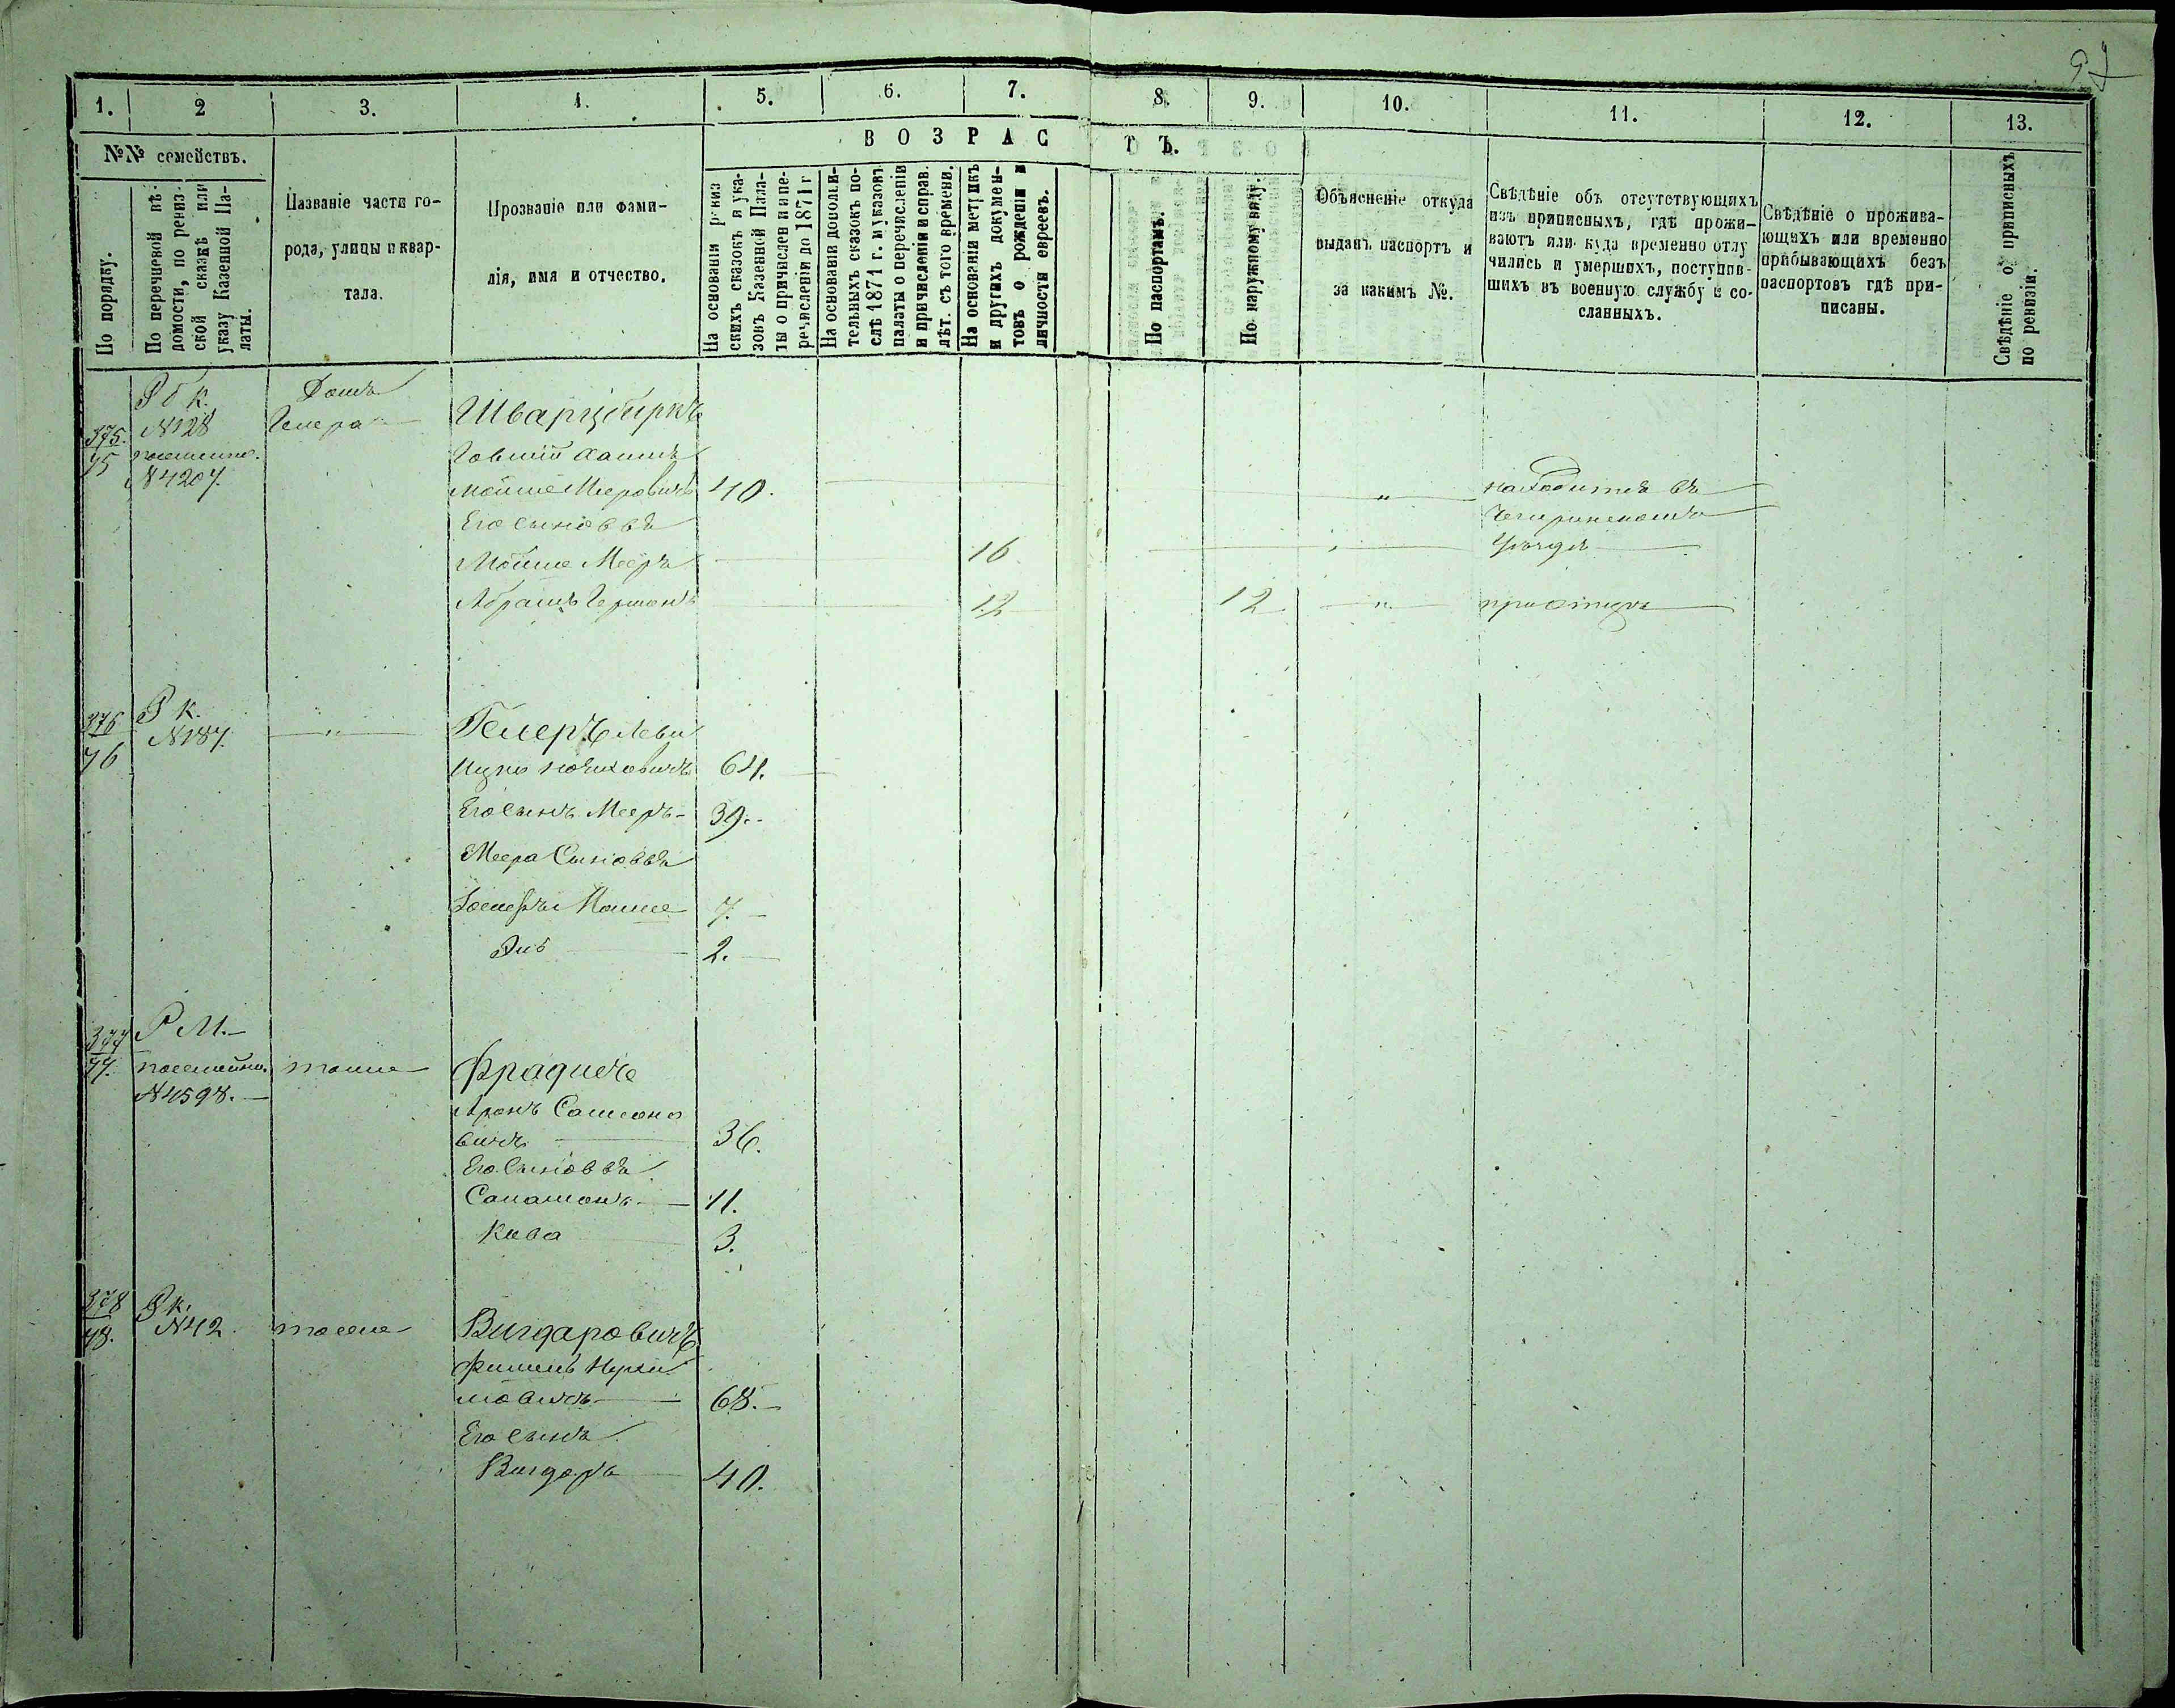 97
1.
2
3.
4.
5.
6.
7.
8.
9.
10.
11.
12.
13.
№№ семействъ.
По порядку.
По перечневой вѣ-
домости, по ревиз.
ской сказкѣ или
указу Казенной Па-
латы.
Названіе части го-
рода, улицы и квар-
тала.
Прозваніе или фами-
лія, имя и отчество.
ВОЗРАС
ТЪ.
На основаніи ревиз
скихъ сказокъ и ука-
зовъ Казенной Пала-
ты о причислен и и пе-
речисленіи до 1871 г
На основаніи дополни-
тельныхъ сказокъ по-
слѣ 1871 г. и указовъ
палаты о перечисленіи
и причисленіи и справ.
лѣт. съ того времени.
На основаніи метрикъ
и другихъ докумен-
товъ о рожденіи и
личности евреевъ.
По паспортамъ.
По наружному виду.
Объясненіе откуда
выданъ паспортъ и
за какимъ №.
Свѣдѣніе объ отсутствующихъ
изъ приписныхъ, гдѣ прожи-
ваютъ или куда временно отлу
чились и умершихъ, поступив-
шихъ въ военную службу и со-
сланныхъ.
Свѣдѣніе о прожива-
ющихъ или временно
прибывающихъ безъ
паспортовъ гдѣ при-
писаны.
Свѣдѣніе о приписныхъ
по ревизіи.
375.
75
Р б к.
N 128
посемейно.
N 4207.
Домъ
Гелера
Шварцбурдъ
Говшій Хаимъ
Мойше Мееровичъ 40. находится въ
Его сыновья Чегиринскомъ
Мойше Мееръ 16 Уѣздѣ
Абрамъ Гершонъ 12 12 " при отцѣ
376
76
Р к.
N 187.
"
Гелеръ Леви
Ицко 64.
Его сынъ Мееръ - 39.-
Меера Сыновья
Мойше 7.-
2.
377
77.
Р М.-
посемейно.
N 4598.-
тоже
Фрадисъ
Аронъ Самсоно
вичъ 36.
Его Сыновья
Саламонъ - 11.
Кива 3.
378
78.
Р к.
N 42
тоже
Вигдаровичъ
Фишель Нухи
мовичъ 68.-
Его сынъ
Вигдоръ 40.